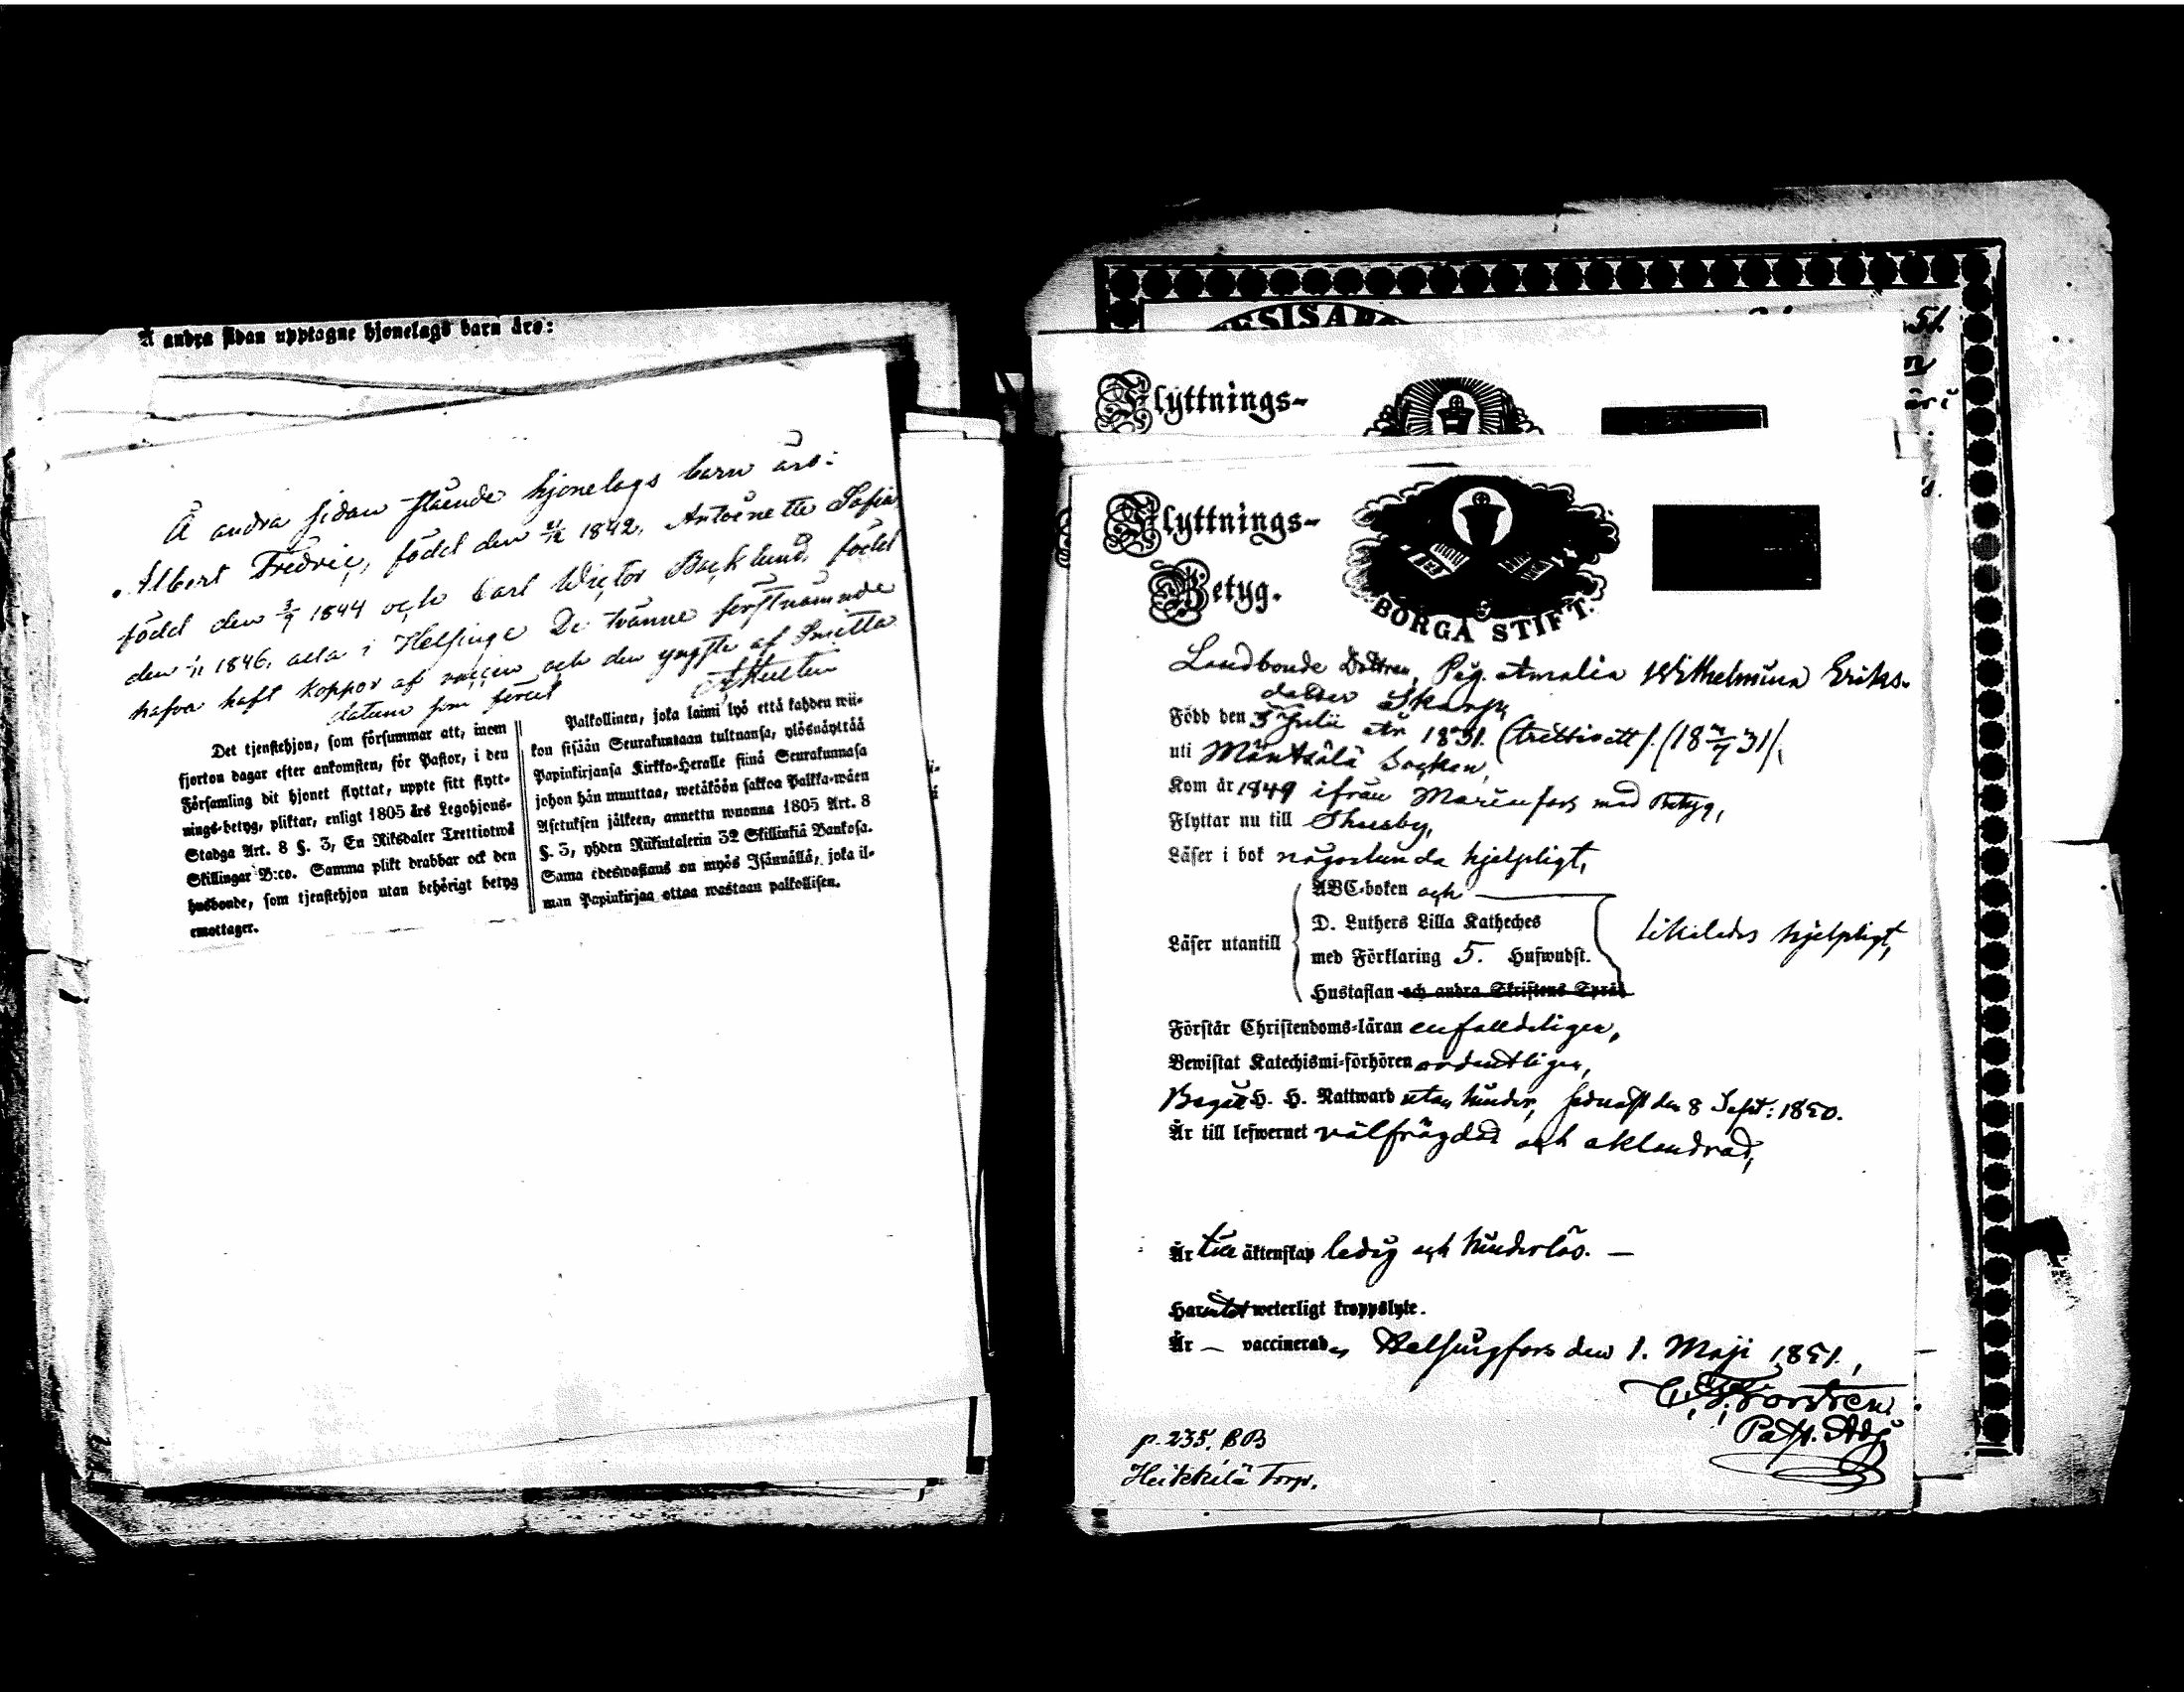 Å andra sidan upptagne hjonelags barn äro:
Å andra sidan stående hjonelags barn äro:
Albert Fredric, född den 4/12 1842, Antoinette Sofia,
född den 3/9 1844 och Carl Wictor Backlund, född
den 1/11 1846, alla i Helsinge De tvänne förstnämnde
hafva haft koppor af vaccin och den yngste af Smitta
datum som förut
Det tjenstehjon, som försummar att, inom
fjorton dagar efter ankomsten, för Pastor, i den
Församling dit hjonet flyttat, uppte sitt flytt-
nings-betyg, pliktar, enligt 1805 års Legohjons-
Stadga Art. 8 §. 3, En Riksdaler Trettiotwå
Skillingar B:co. Samma plikt drabbar ock den
husbonde, som tjenstehjon utan behörigt betyg
emottager.
Palkollinen, joka laimi lyö että kahden wii-
kon sisään Seurakuntaan tultuansa, ylösnäyttää
Papinkirjansa Kirkko-Herralle siinä Seurakunnasa
johon hän muuttaa, wetäköön sakkoa Palkka-wäen
Asetuksen jälkeen, annettu wuonna 1805 Art. 8
§. 3, yhden Riikintalerin 32 Skillinkiä Bankosa.
Sama edeswastaus on myös Isännällä, joka il-
man Papinkirjaa ottaa wastaan palkollisen.
51.
Flyttnings-
Flyttnings-
Betyg.
BORGÅ STIFT.
Landbonde Dottren, Pig. Amalia Wilhelmina Eriks-
dotter Skarp,
Född den 3 Julii år 1831. (trettioett)
uti Mäntsälä Socken,
Kom år 1849 ifrån Mariefors med Betyg,
Flyttar nu till Thusby,
Läser i bok någorlunda hjelpligt,
Läser utantill
ABC-boken och
D. Luthers Lilla Katheches
med Förklaring 5. Hufwudst.
Hustaflan och andra Skriftens Språk
likaledes hjelpligt,
Förstår Christendoms-läran enfaldeligen,
Bewistat Katechismi-förhören ordentligen,
Begått H. H. Nattward utan hinder, sednast den 8 Sept: 1850.
Är till lefwernet välfrägdad och oklandrad,
Är till äktenskap ledig och hinderlös. —
Har intet weterligt kroppslyte.
Är — vaccinerad, Helsingfors den 1. Maji 1851,
Forstén
Past. Adj
p. 235, BB
Heikkilä Torp.